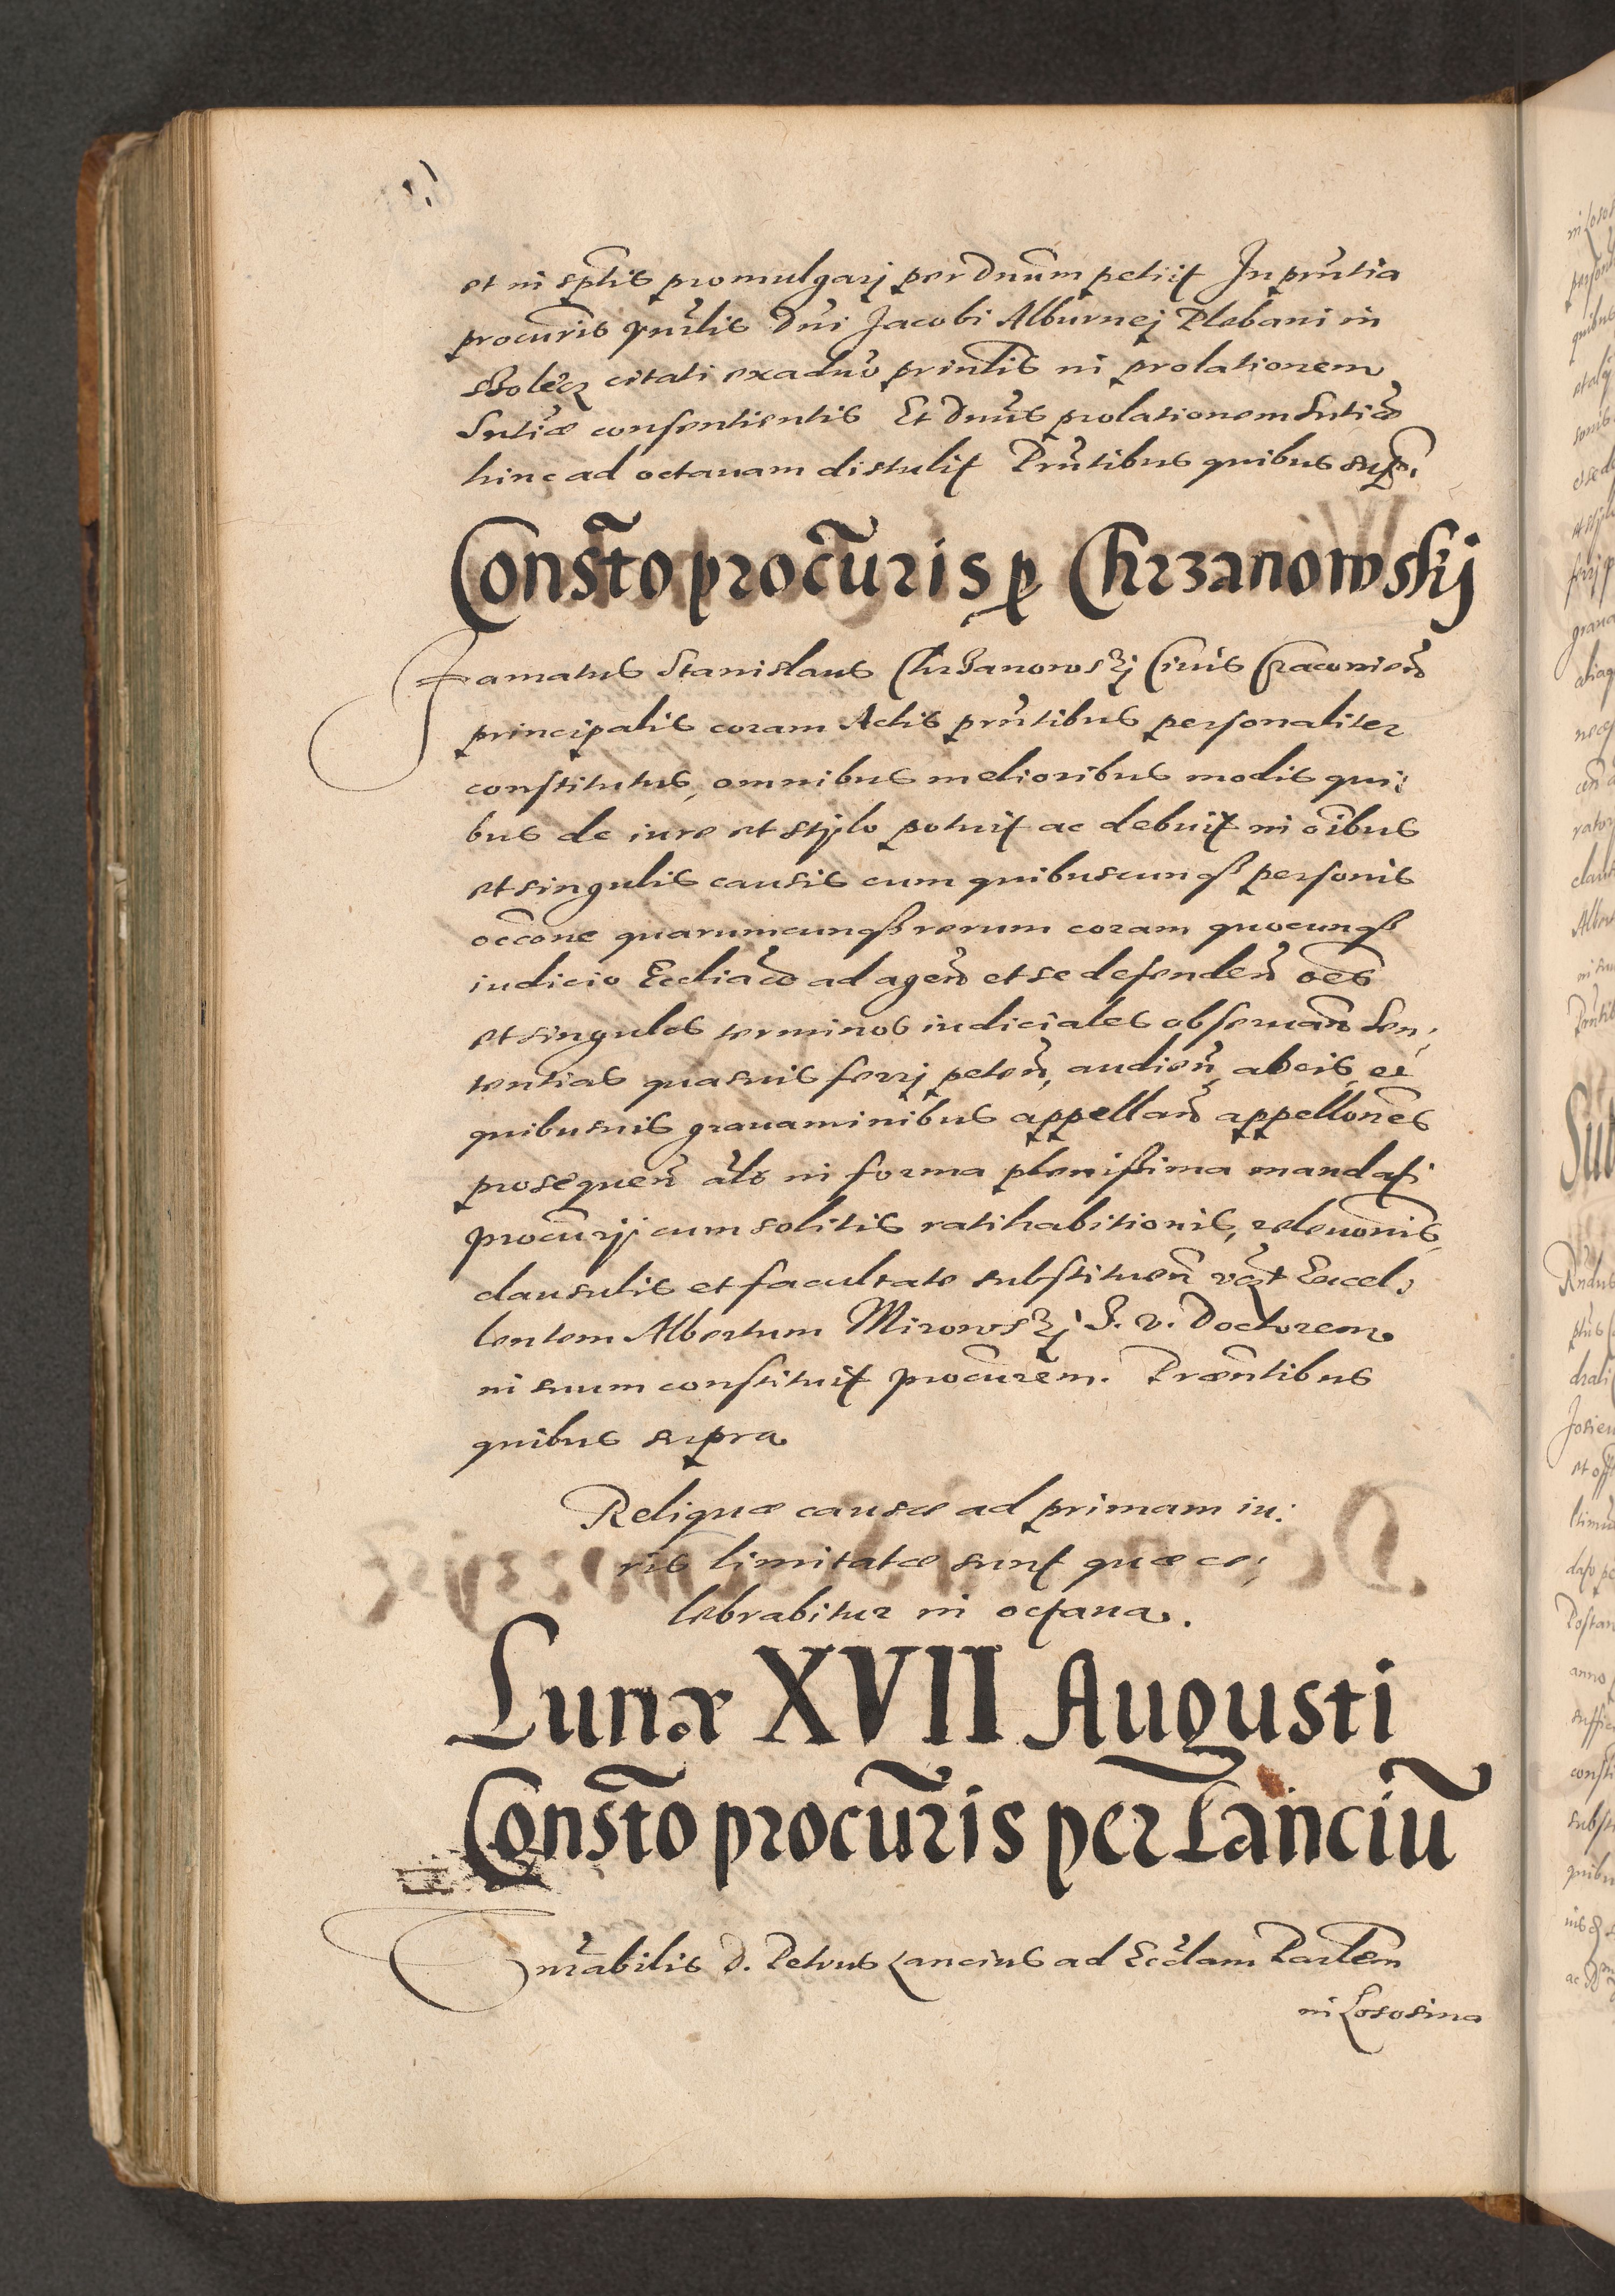 et in sptis promulgarj per Dnum petiit In prntia
procuris prnlis Dni Jacobi Alburnej Plebani in
citati ex aduo prinlis in prolationem
Sntiæ consentientis Et Dnus prolationem Sntiæ
hinc ad octauam distulit Prntibus quibus sup.
Consto procuris p Chrzanowskj
Famatus Stanislaus Chrzanowskj Ciuis Cracouien
principalis coram Actis prntibus personaliter
constitutus, omnibus melioribus modis qui:
bus de iure et stylo potuit ac debuit in oibus
et singulis causis cum quibuscunq personis
occone quarumcunq rerum coram quocunq
iudicio Eccliaco ad agen et se defenden oes
et singulos terminos iudiciales obseruan Sen,
tentias quasuis ferrj peten, audien, ab eis, et
quibusuis grauaminibus appellan appellones
prosequen als in forma plenissima mandati
procurij cum solitis ratihabitionis, releuonis,
clausulis et facultate substituen Excel:
lentem Albertum Mirowskj J. V. Doctorem
in suum constituit procurem. Præntibus
quibus supra
Reliquæ causæ ad primam iu:
ris limitatæ sunt quæ ce:
lebrabitur in octaua.
Lunæ XVII Augusti
Consto procuris per Lanciu
Vnrabilis D. Petrus Lancius ad Ecclam Parlem
in Lososina